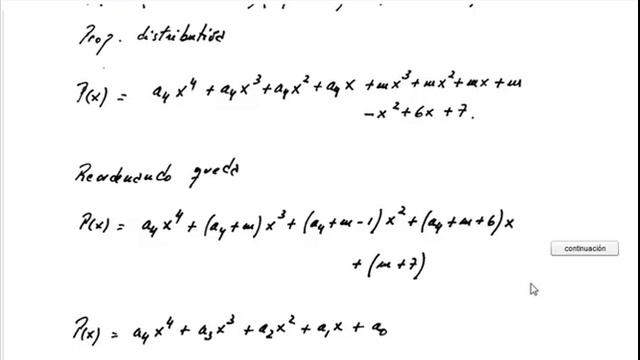 Prop. distributiva
P(x) = a₄x⁴ + a₄x³ + a₄x² + a₄x + mx³ + mx² + mx + m
-x² + 6x + 7.
Reordenando queda
P(x) = a₄x⁴ + (a₄+m)x³ + (a₄+m-1)x² + (a₄+m+6)x
+ (m+7)
continuación
P(x) = a₄x⁴ + a₃x³ + a₂x² + a₁x + a₀